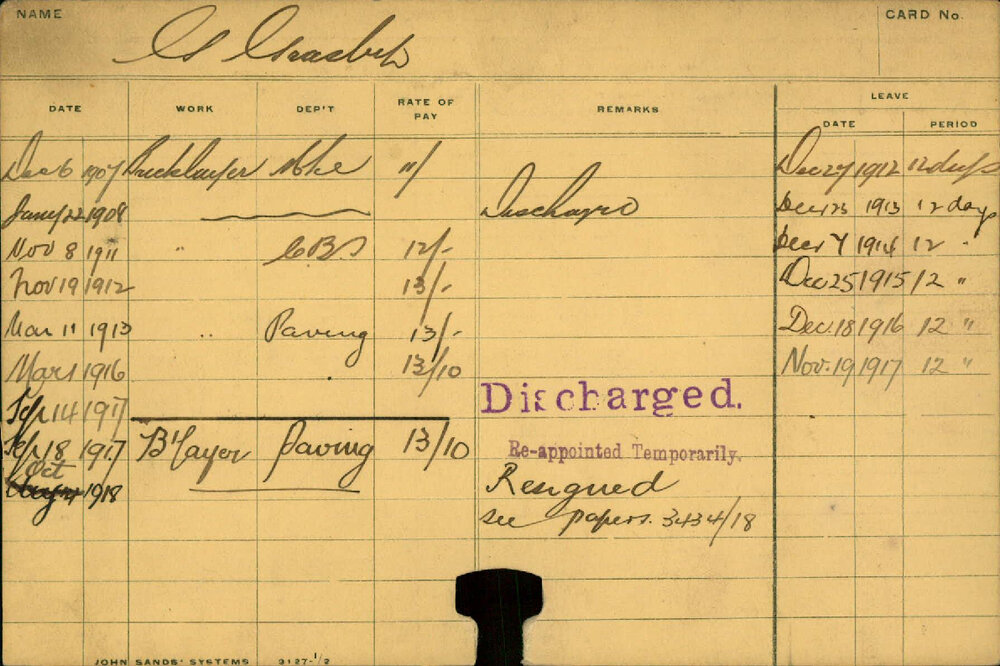 NAME
CARD No.
G
DATE WORK DEP'T RATE OF PAY REMARKS LEAVE
DATE PERIOD
Dec 6 1907 Bricklayer 11/ Dec 27 1912 12 days
Jany 22 1908 Discharged Decr 23 1913 12 days
Nov 8 1911 " 12/- Decr 7 1914 12 "
Nov 19 1912 13/- Dec 25 1915 12 "
Mar 11 1913 " Paving 13/- Dec. 18 1916 12 "
Mar 1 1916 13/10 Nov. 19 1917 12 "
Sep 14 1917 Discharged.
Sep 18 1917 B'layer Paving 13/10 Re-appointed Temporarily.
Oct 1918 Resigned
see papers. 3434/18
JOHN SANDS' SYSTEMS 3127-1/2